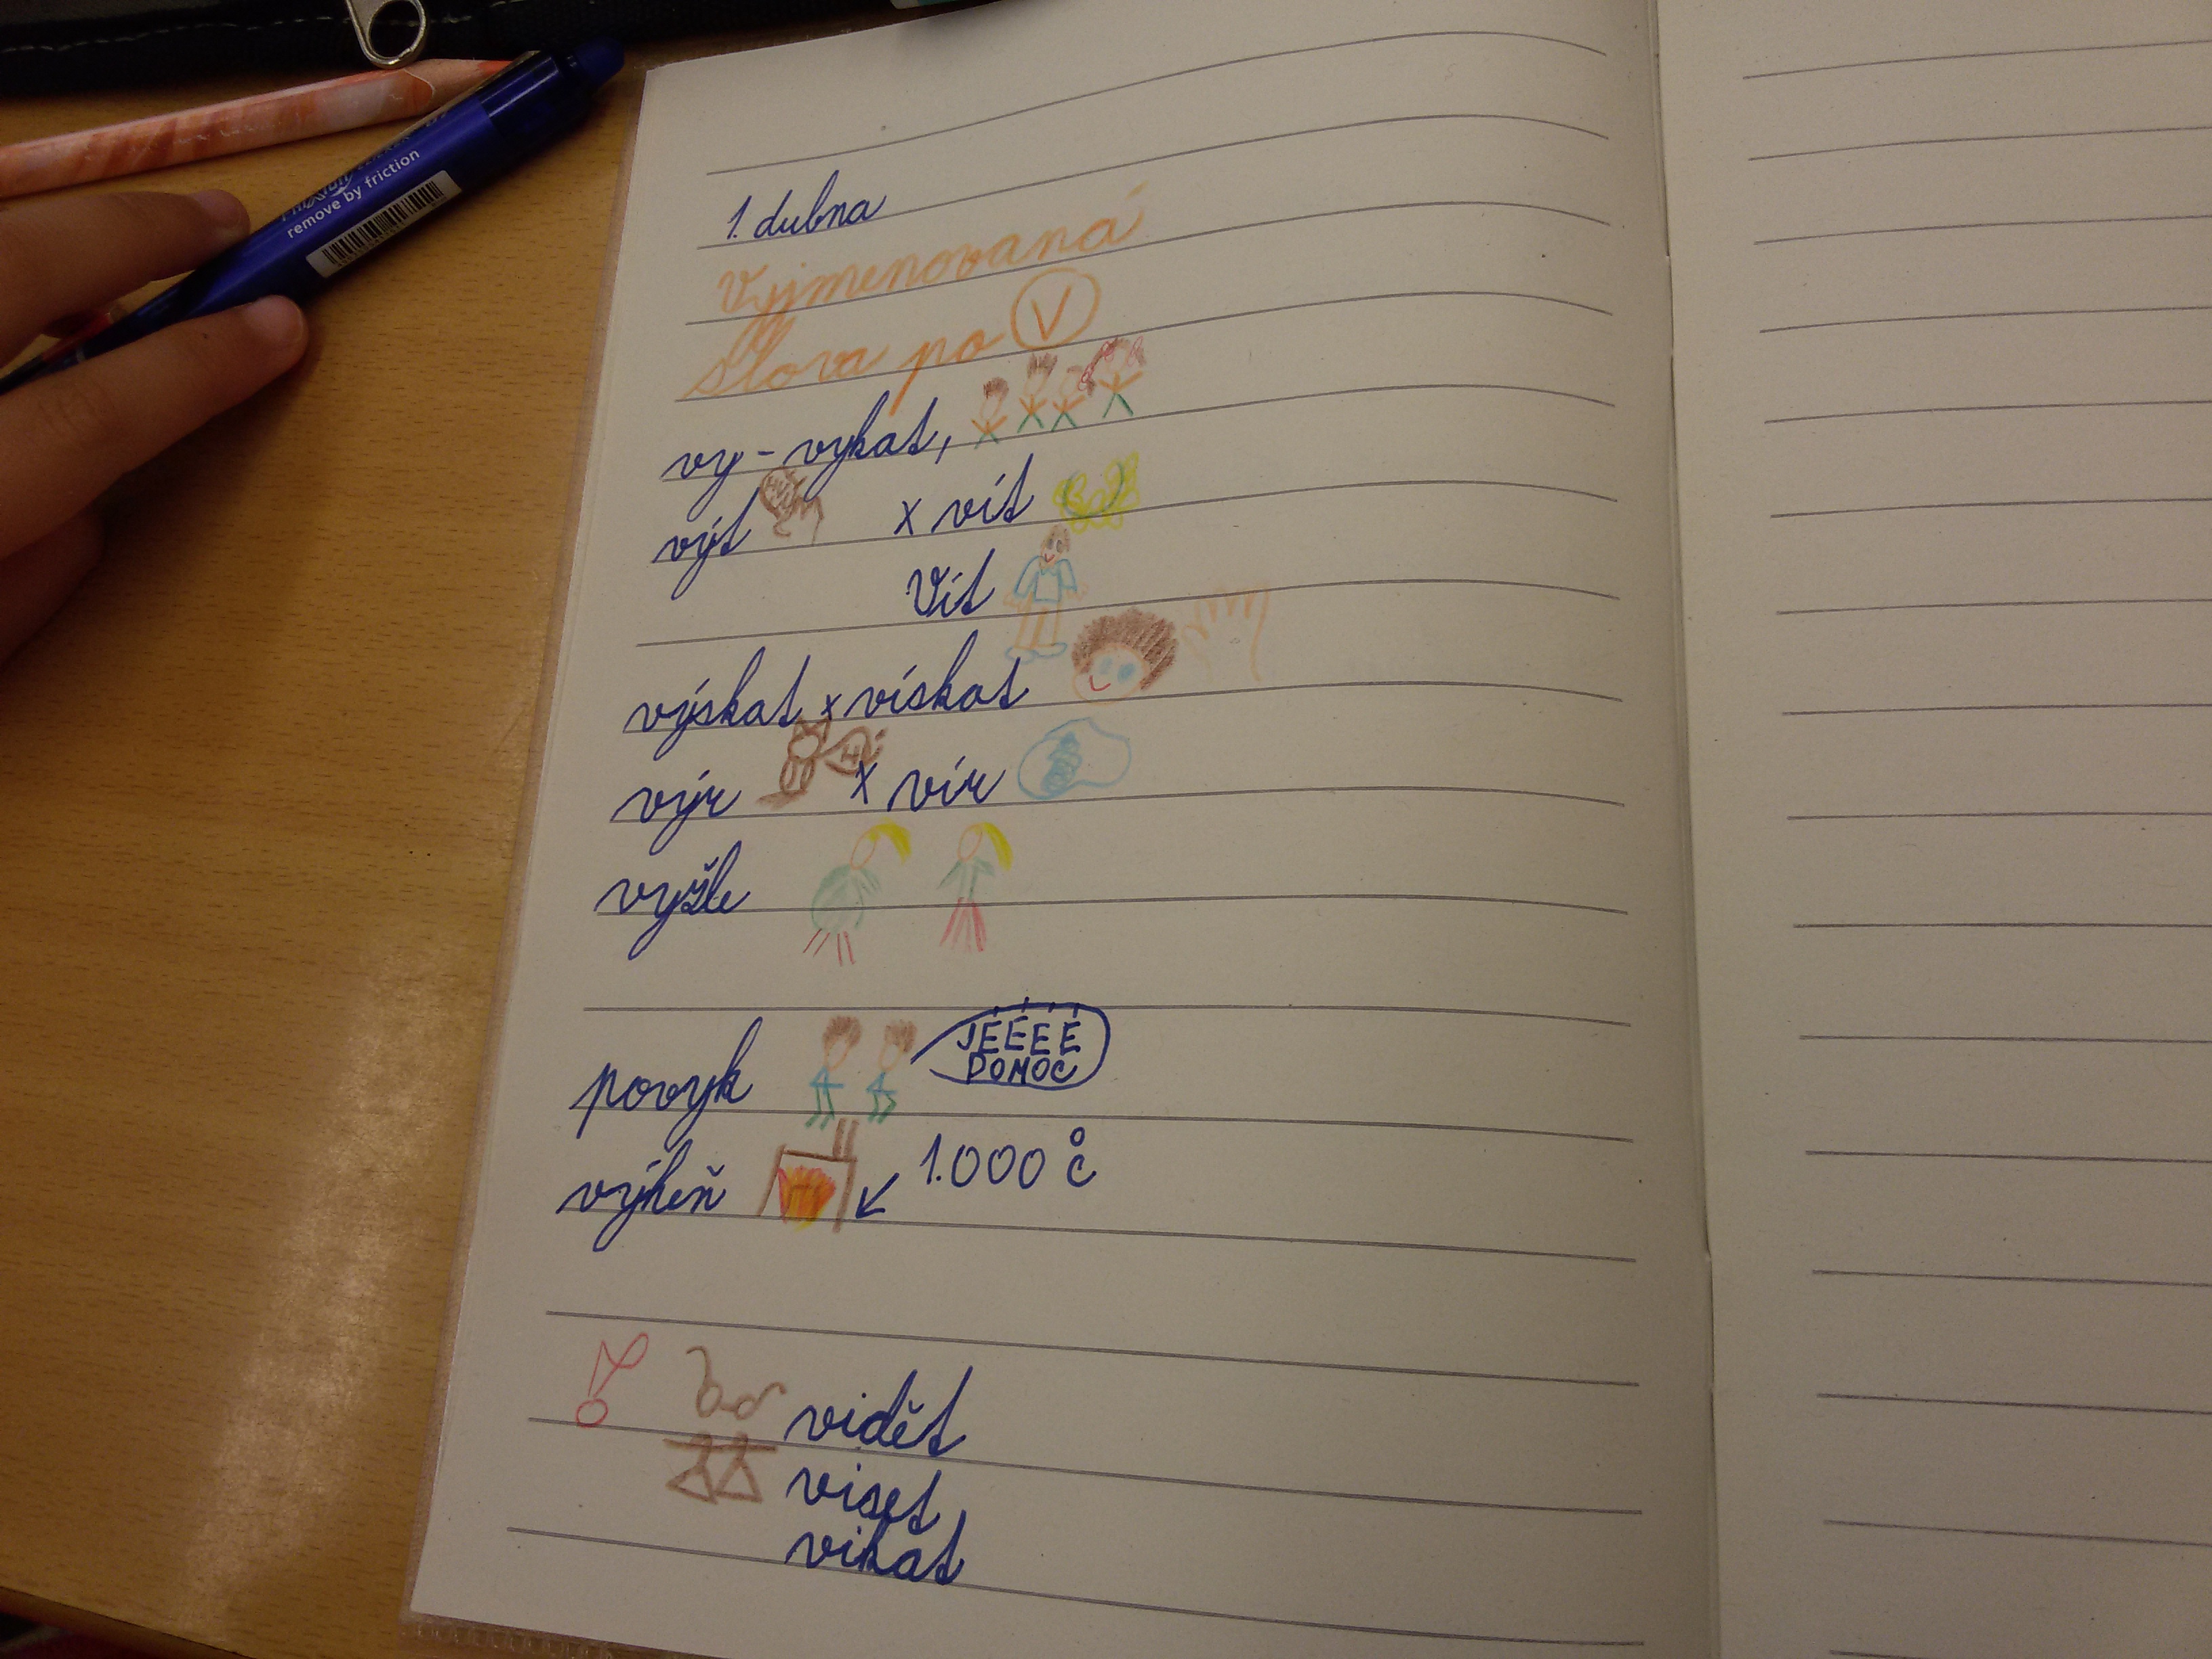 remove by friction
1. dubna
Vyjmenovaná
Slova po V
vy - vykat,
výt x vít
Vít
výskat x vískat
výr x vír
vyžle
povyk JÉÉÉÉ
POMOC
výheň 1.000 °C
vidět
viset
vikat